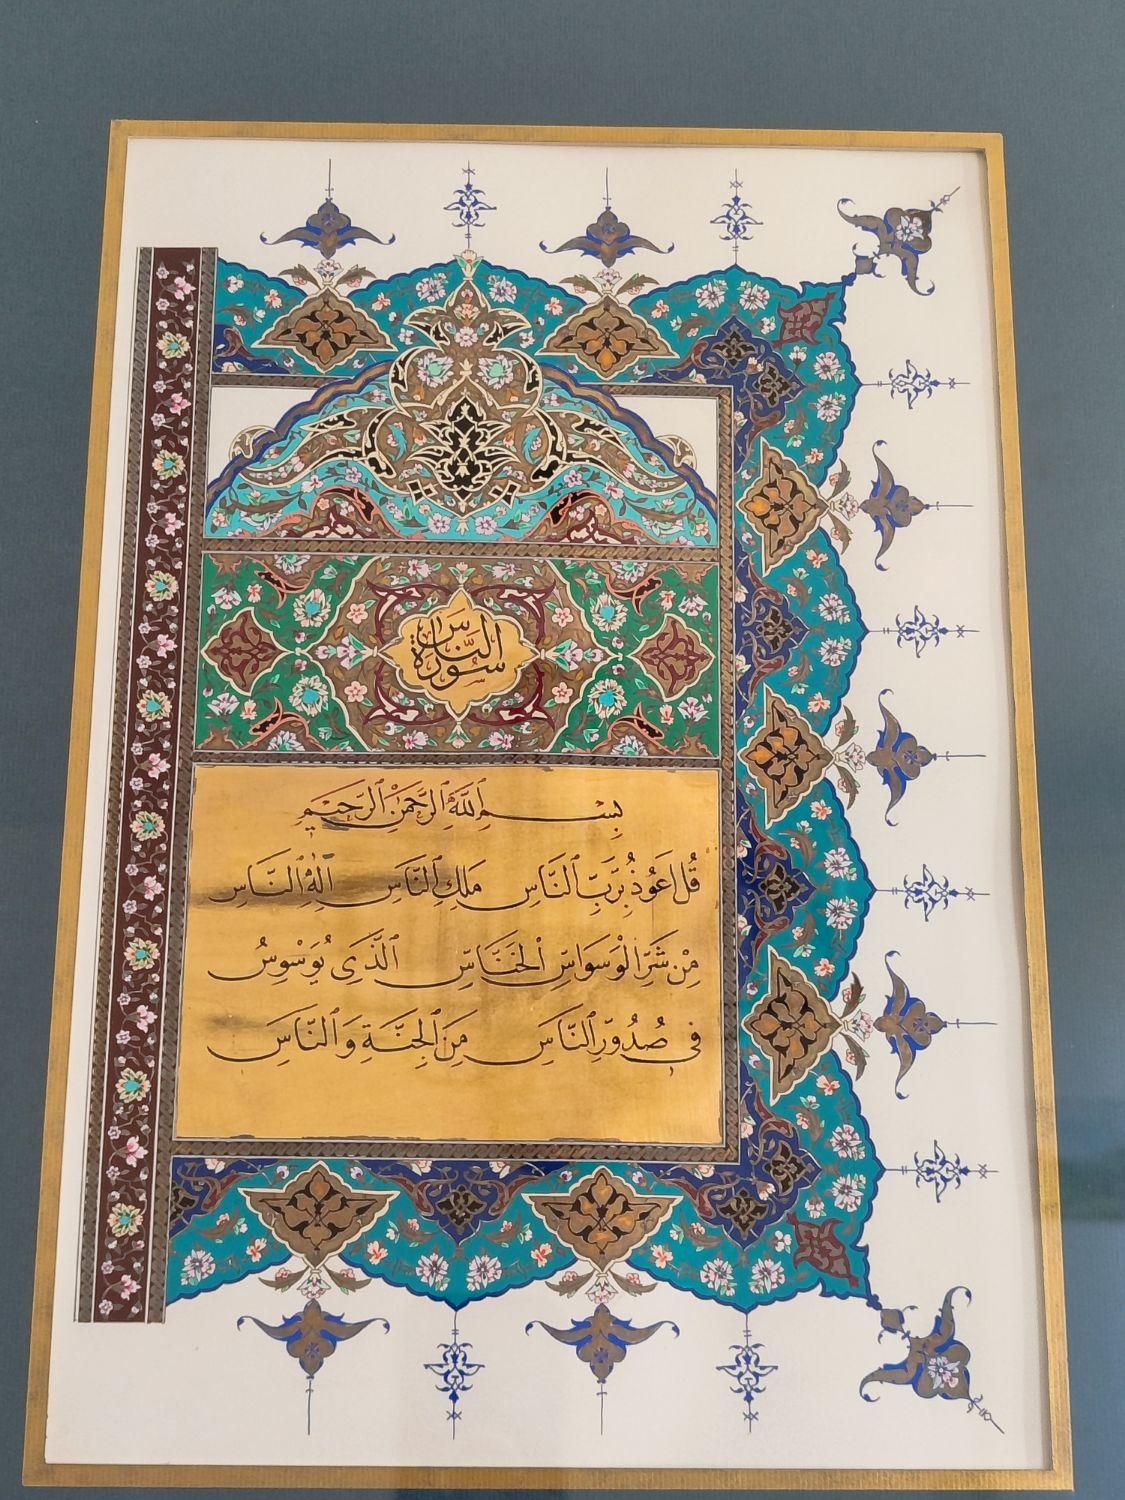 سورة الناس
بِسْمِ ٱللَّهِ ٱلرَّحْمَٰنِ ٱلرَّحِيمِ
قُلْ اَعُوذُ بِرَبِّ ٱلنَّاسِ مَلِكِ ٱلنَّاسِ اِلٰهِ ٱلنَّاسِ
مِنْ شَرِّ ٱلْوَسْوَاسِ ٱلْخَنَّاسِ ٱلَّذَى يُوَسْوِسُ
فى صُدُورِ ٱلنَّاسَ مِنَ ٱلْجِنَّةِ وَ ٱلنَّاسَ